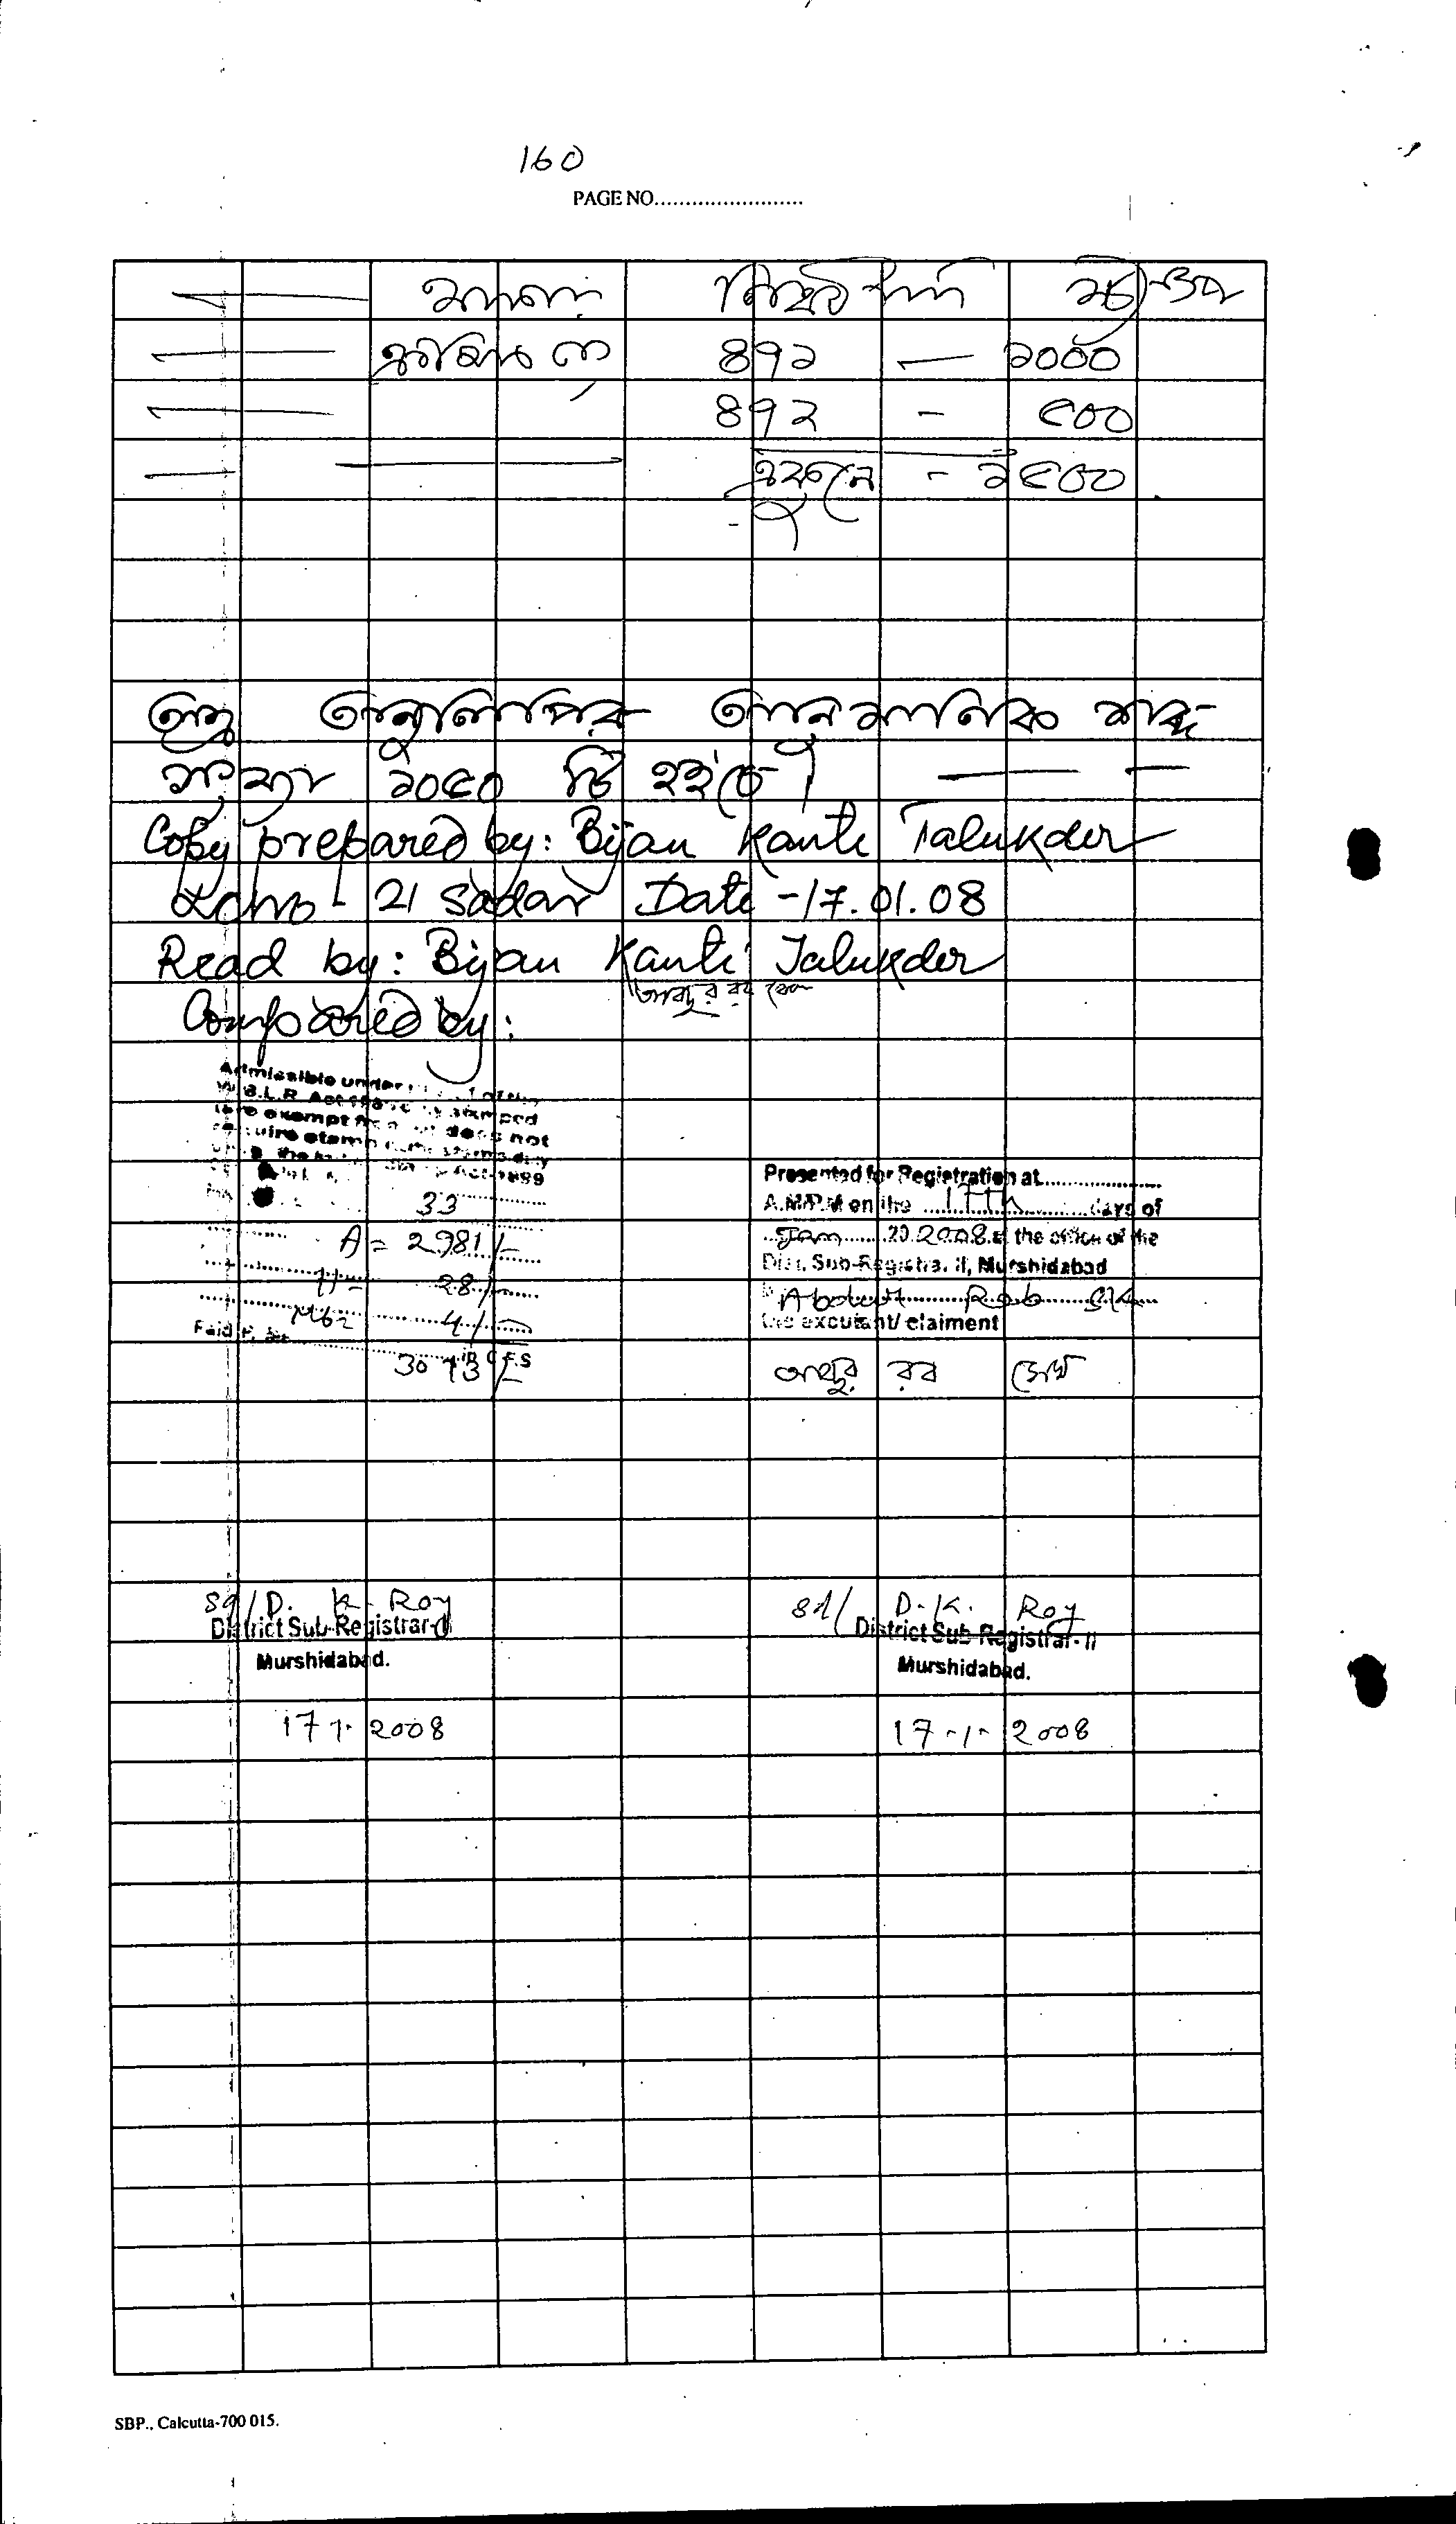 160
PAGE NO........................
৪৭১ — ১০০০
৪৭২ - ৫০০
একুনে - ১৫০০
অত্র অনুলিপির আনুমানিক শব্দ
সংখ্যা ১০৫০ টি হইবে।
Copy prepared by: Bijan Kanti Talukder
21 Sadar Date - 17.01.08
Read by: Bijan Kanti Talukder
আব্দুর রব সেখ
Compared by:
Admissible under
W.B.L.R. Act stamped
exempt does not
require stamp
33
A = 2981/-
28/-
4/-
3013/-
Presented for Registration at
A.M/P.M on the 17th days of
Jan 20 2008 at the office of the
Dist. Sub-Registrar II, Murshidabad
Abdur Rob SK
the excutant/ claiment
আব্দুর রব সেখ
Sd/ D. K. Roy
District Sub-Registrar-II
Murshidabad.
17-1-2008
Sd/ D. K. Roy
District Sub-Registrar-II
Murshidabad.
17-1-2008
SBP., Calcutta-700 015.